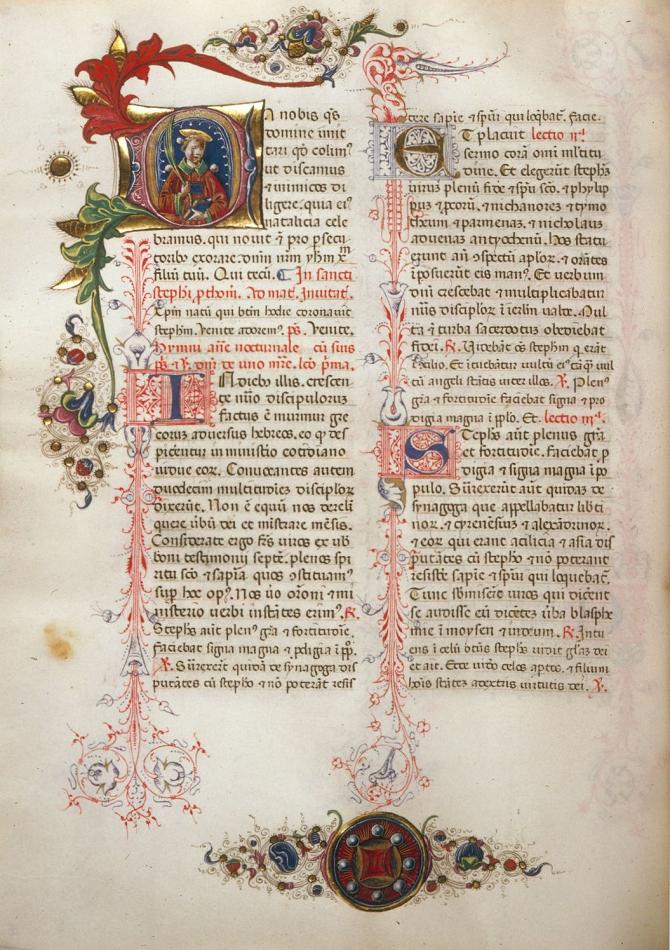 Da nobis qs
domine imit
tari qđ colim⁹
ut discamus
⁊ inimicos di
ligere. quia ei⁹
natalicia cele
bramus. qui novit ē pro ꝑsecu
toribꝫ exorare. dnm nrm yhm xp̄m
filiū tuū. Qui tecū. In sancti
stephi ꝓthom. Ad mat̄. Invitat̄.
Xpm natū qui btm hodie coronavit
stephm. Venite adorem⁹. ps. Venite.
cū suis
I N diebꝫ illis. crescen
te nūo discipulorum
factus ē murmur gre
corum adversus hebreos. eo ꝙ des
picerentur in ministio cotidiano
vidue eoꝝ. Convocantes autem
duodecim multitudiēꝫ disciploꝝ
dixerūt. Non ē equū nos dereli
quere ūbū dei et mīstrare mēsis.
Considerate ergo fr̄s viros ex ub
boni testimonii septē. plenos spi
ritu sco ⁊ sapīa quos ɔstituam⁹
suꝑ hoc op⁹. Nos ūo oroni ⁊ mi
nisterio verbi instātes erim⁹. R̄.
Stephs aūt plen⁹ grā et fortitudīe.
Faciebat signa magna ⁊ ꝓdigia ī pp̄.
R̄. Surrexerūt quidā de synagoga dis
putātes cū stepho ⁊ nō poterāt resis
tere sapīe ⁊ spūi qui loqbat̄. facie.
E T placuit lectio iiᵃ
sermo corā omi mltitu
dine. Et elegerūt stephꝫ
virum plenū fide ⁊ spū sco. ⁊ phylip
pum ⁊ pcorū. ⁊ nichanorem ⁊ tymo
theum ⁊ parmenam. ⁊ nicholaum
advenam antyochenū. Hos statu
erunt añ ɔspectū aploꝝ. ⁊ orātes
īposuerūt eis man⁹. Et verbum
dnī crescebat ⁊ multiplicabatur
nūus disciploꝝ ī ierlm valde. Mul
ta ⁊ turba sacerdotū obediebat
fidei. R̄. Videbāt ōs stephm q erāt
ī ɔcilio. Et ītuebātur vultū ei⁹ tāꝙ vul
tū angeli stātis inter illos. R̄. Plen⁹
grā ⁊ fortitudīe faciebat signa ⁊ pro
digia magna ī pplo. Et. lectio iiiᵃ.
S Tephs aūt plenus grā
et fortitudīe. Faciebat ꝓ
digia ⁊ signa magna ī po
pulo. Surrexerūt aūt quidam de
synagoga que appellabatur libti
noꝝ. ⁊ cyrenēsium ⁊ alexādrinoꝝ.
⁊ eoꝝ qui erant a cilicia ⁊ asia dis
putātes cū stepho ⁊ nō poterant
resistē sapīe ⁊ spūi qui loquebat̄.
Tunc sbmiserūt viros qui dicerent
se audisse eū dicētem ūba blasphe
mie ī moysen ⁊ in deum. R̄. Intu
ens ī celū btūs stephs vidit glāꝫ dei
et ait. Ecce video celos aptos. ⁊ filium
hoīs stātem a dextris virtutis dei. R̄.